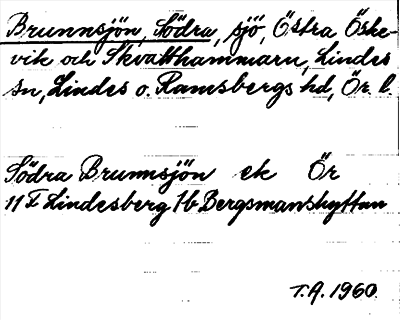 Brunnsjön, Södra, sjö, Östra Öske-
vik och Skvatthammarn, Lindes
sn, Lindes o. Ramsbergs hd, Ör. l.
Södra Brunnsjön ek Ör
11 F Lindesberg 7b Bergsmanshyttan
T.A. 1960.